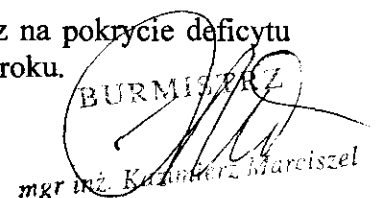 z na pokrycie deficytu
roku.
BURMISTRZ
mgr inż. Kazimierz Marciszel